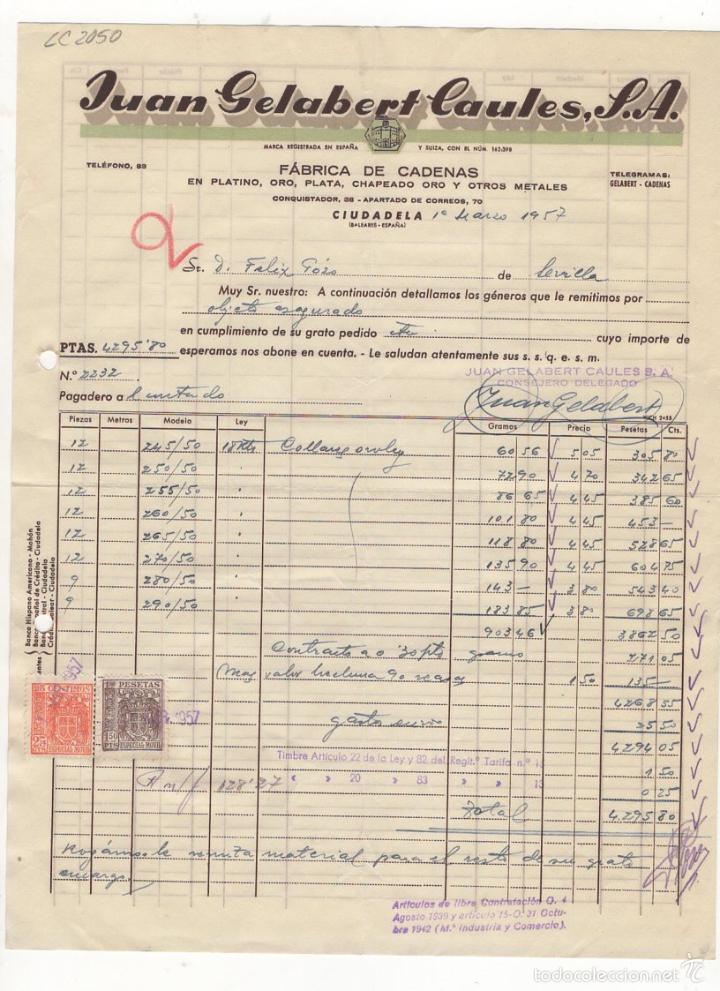 LC 2050
Juan Gelabert Caules, S.A.
MARCA REGISTRADA EN ESPAÑA Y SUIZA, CON EL NÚM. 162.398
TELÉFONO, 83
FÁBRICA DE CADENAS
TELEGRAMAS:
EN PLATINO, ORO, PLATA, CHAPEADO ORO Y OTROS METALES
GELABERT - CADENAS
CONQUISTADOR, 38 - APARTADO DE CORREOS, 70
CIUDADELA 1º Marzo 1957
(BALEARES - ESPAÑA)
Sr. D. Felix Pózo de Sevilla
Muy Sr. nuestro: A continuación detallamos los géneros que le remitimos por
objeto asegurado
en cumplimiento de su grato pedido cuyo importe de
PTAS. 4295'80 esperamos nos abone en cuenta. - Le saludan atentamente sus s. s. q. e. s. m.
JUAN GELABERT CAULES S. A.
N.º 2232
CONSEJERO DELEGADO
Juan Gelabert
Pagadero a
Piezas Metros Modelo Ley Gramos Precio Pesetas Cts.
12 245/50 18 Kts 60 56 5 05 305 80
12 250/50 72 90 4 70 342 65
12 255/50 86 65 4 45 385 60
12 260/50 101 80 4 45 453 —
12 265/50 118 80 4 45 528 65
12 270/50 135 90 4 45 604 75
9 280/50 143 — 3 80 543 40
9 290/50 183 85 3 80 698 65
903 46 3862 50
Contraste a 0'30 pts gramo 271 05
Mas valor hechura 90 1 50 135 —
4268 55
gastos envio 25 50
4294 05
Timbre Artículo 22 de la Ley y 82 del Regit.º Tarifa n.º 1 50
» 20 » 83 » 0 25
128'27
Total 4.295 80
Rogámosle remita material para el resto de su grato
encargo.
Banco Hispano Americano - Mahón
25 CTS
ESPECIAL MOVIL
PESETAS
1'50 PTS
ESPECIAL MOVIL
1957
Artículos de libre Contratación O. 4
Agosto 1939 y artículo 15-O. 31 Octu-
bre 1942 (M.ª Industria y Comercio).
todocoleccion.net